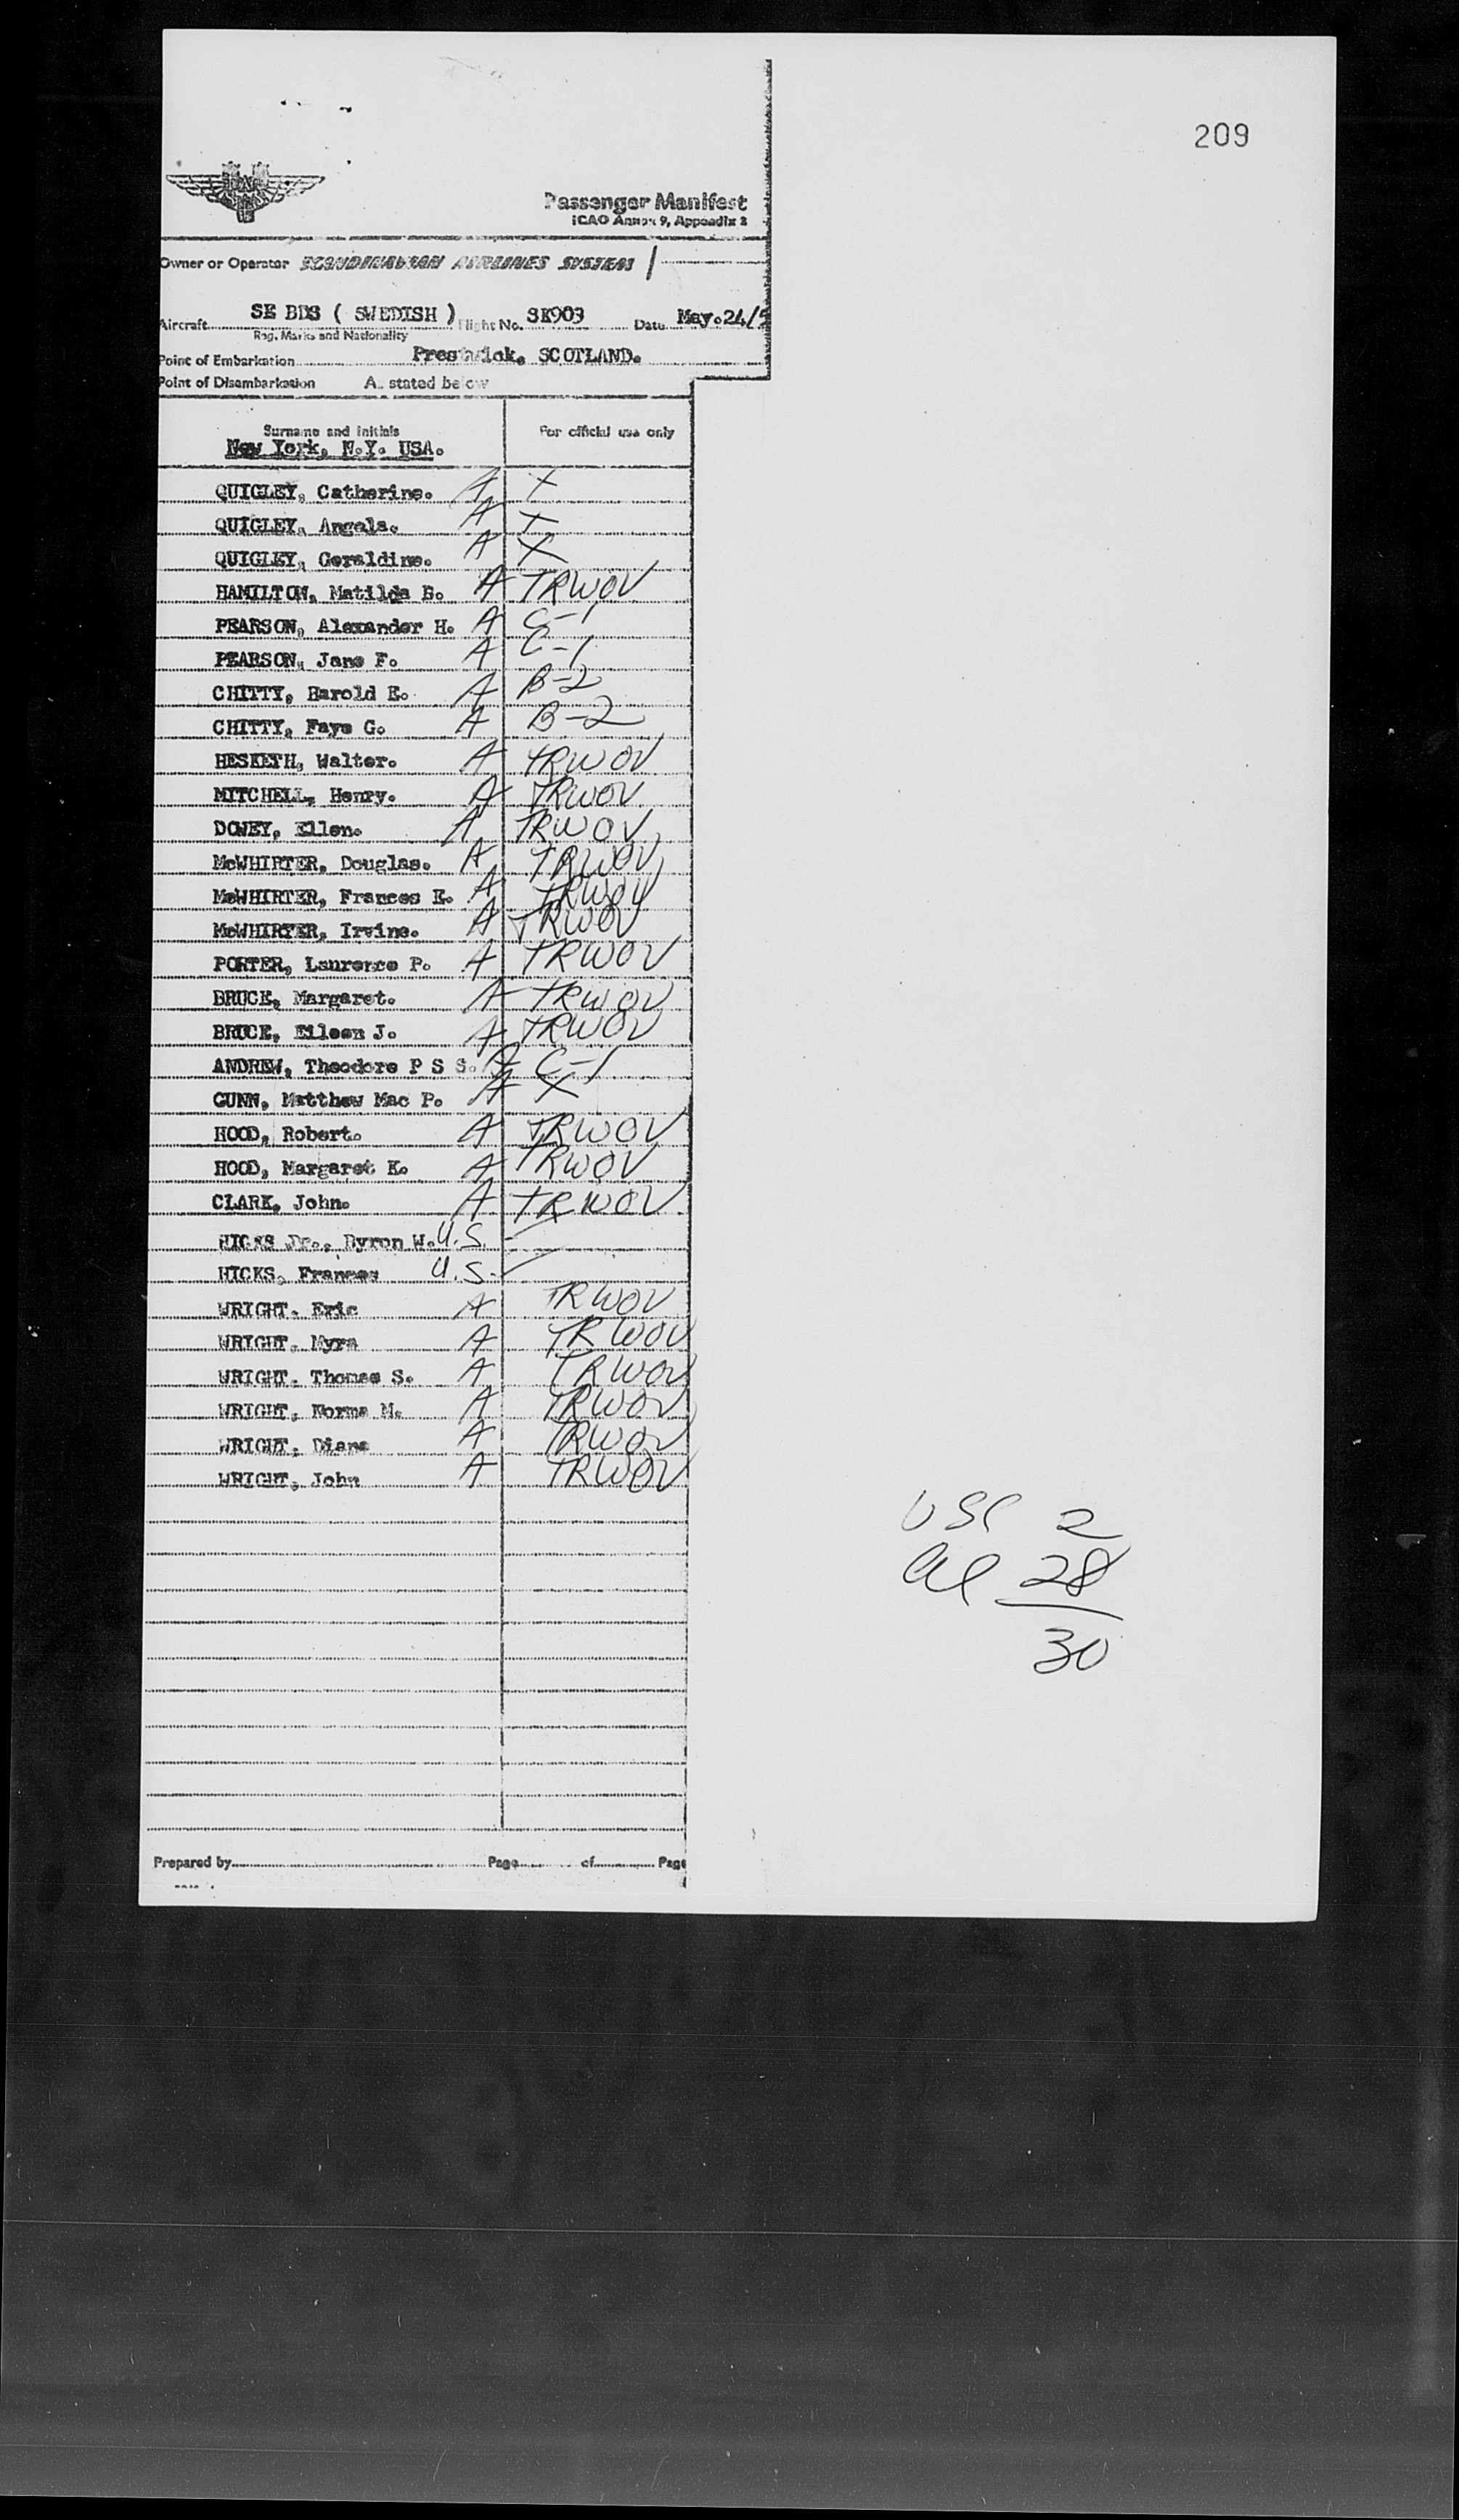 209
Passenger Manifest
ICAO Annex 9, Appendix 2
Owner or Operator SCANDINAVIAN AIRLINES SYSTEM
Aircraft SE BDS ( SWEDISH ) Flight No. SK903 Date May.24/5
Reg. Marks and Nationality
Point of Embarkation Prestwick, SCOTLAND.
Point of Disembarkation As stated below
Surname and initials For official use only
New York, N.Y. USA.
QUIGLEY, Catherine. A X
QUIGLEY, Angela. A X
QUIGLEY, Geraldine. A X
HAMILTON, Matilda B. A TRWOV
PEARSON, Alexander H. A C-1
PEARSON, Jane F. A C-1
CHITTY, Harold E. A B-2
CHITTY, Faye G. A B-2
HESKETH, Walter. A TRWOV
MITCHELL, Henry. A TRWOV
DOWEY, Ellen. A TRWOV
McWHIRTER, Douglas. A TRWOV
McWHIRTER, Frances E. A TRWOV
McWHIRTER, Irvine. A TRWOV
PORTER, Laurence P. A TRWOV
BRUCE, Margaret. A TRWOV
BRUCE, Eileen J. A TRWOV
ANDREW, Theodore P S S. A C-1
GUNN, Matthew Mac P. A X
HOOD, Robert. A TRWOV
HOOD, Margaret K. A TRWOV
CLARK, John. A TRWOV
HICKS Jr., Byron W. U.S.
HICKS, Frances U.S.
WRIGHT. Eric A TRWOV
WRIGHT. Myra A TRWOV
WRIGHT. Thomas S. A TRWOV
WRIGHT, Norma M. A TRWOV
WRIGHT, Diana A TRWOV
WRIGHT, John A TRWOV
USC 2
al 28
30
Prepared by Page of Page